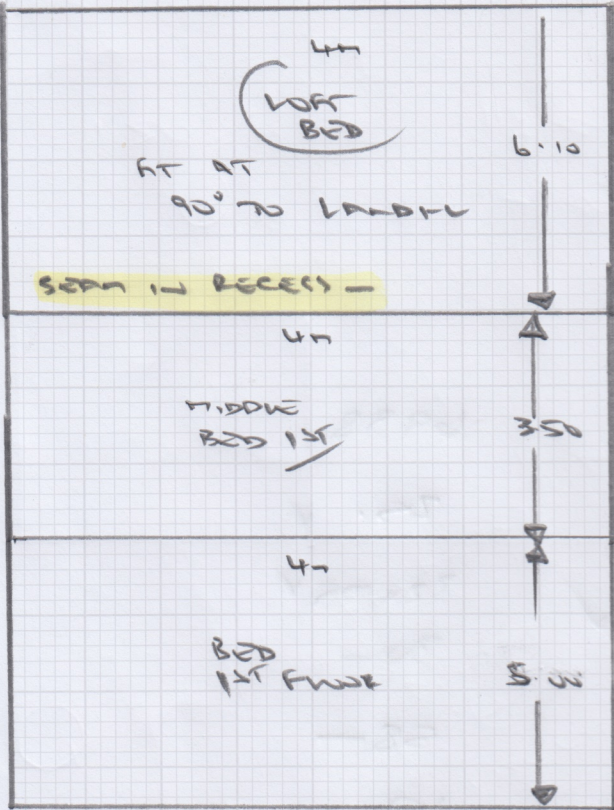 4m
LOFT
BED
6.10
FIT AT
90° TO LANDING
SEAM IN RECESS -
4m
MIDDLE
BED 1ST
3.50
4m
BED
1ST FLOOR
5.00